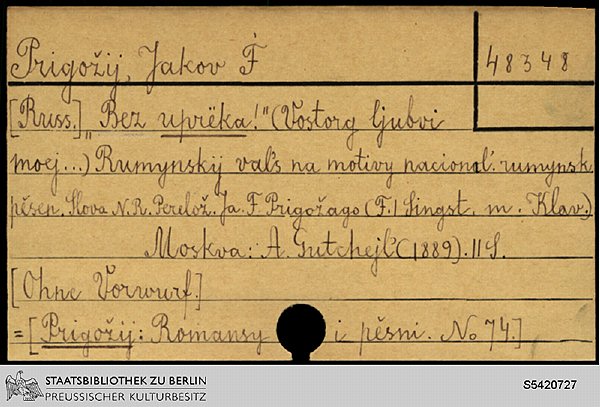 Prigožij, Jakov F. 48348
[Russ.] „Bez uprëka!" (Vostorg ljubvi
moej...) Rumynskij val's na motivy nacional' rumynsk
pěsen. Slova N. R. Perelož. Ja. F. Prigožago (F. 1 Singst. m. Klav.)
Moskva: A. Gutchejl' (1889). 11 S.
[Ohne Vorwurf.]
= [Prigožij: Romansy i pěsni. No 74.]
STAATSBIBLIOTHEK ZU BERLIN
PREUSSISCHER KULTURBESITZ
S5420727